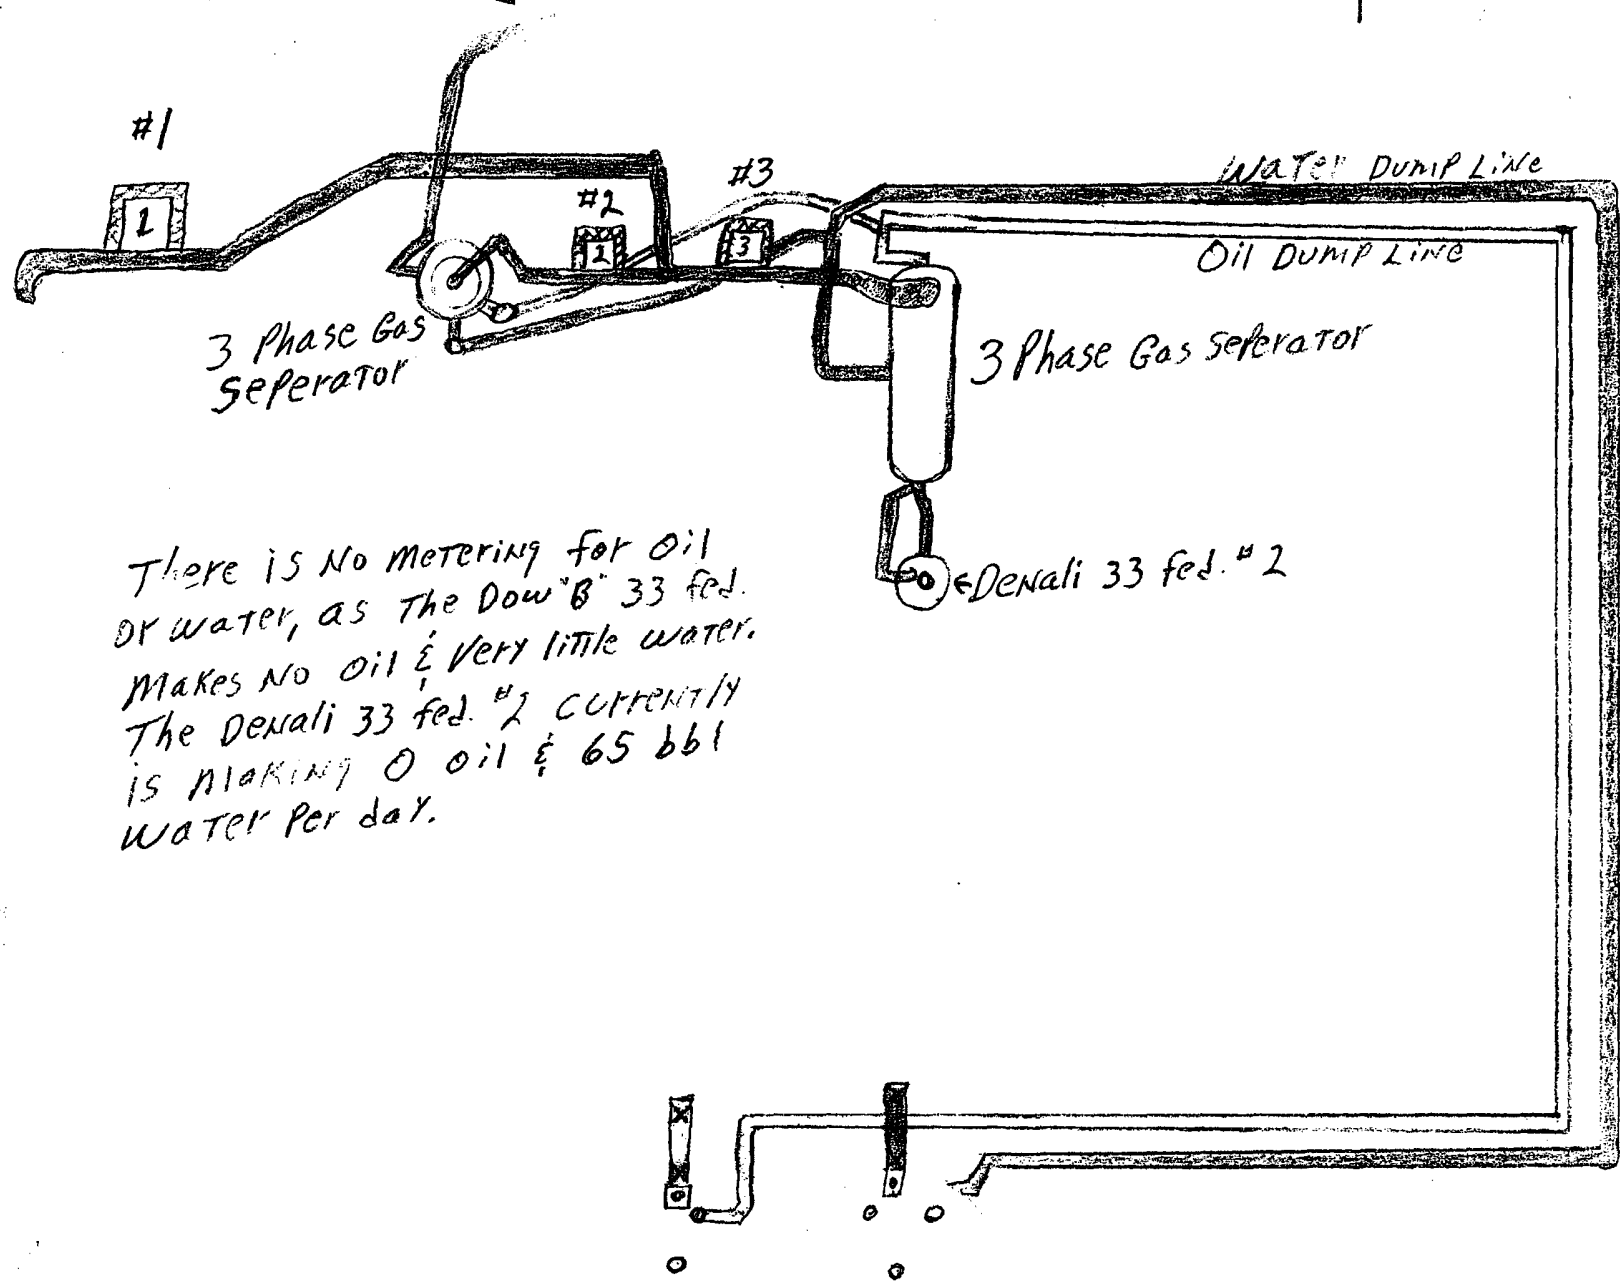 #1
1
#2
2
#3
3
Water Dump Line
Oil Dump Line
3 Phase Gas
Seperator
3 Phase Gas Seperator
Denali 33 fed. #2
There is No metering for oil
or water, as The Dow "B" 33 fed.
Makes No oil & Very little water.
The Denali 33 fed. #2 currently
is making 0 oil & 65 bbl
water Per day.